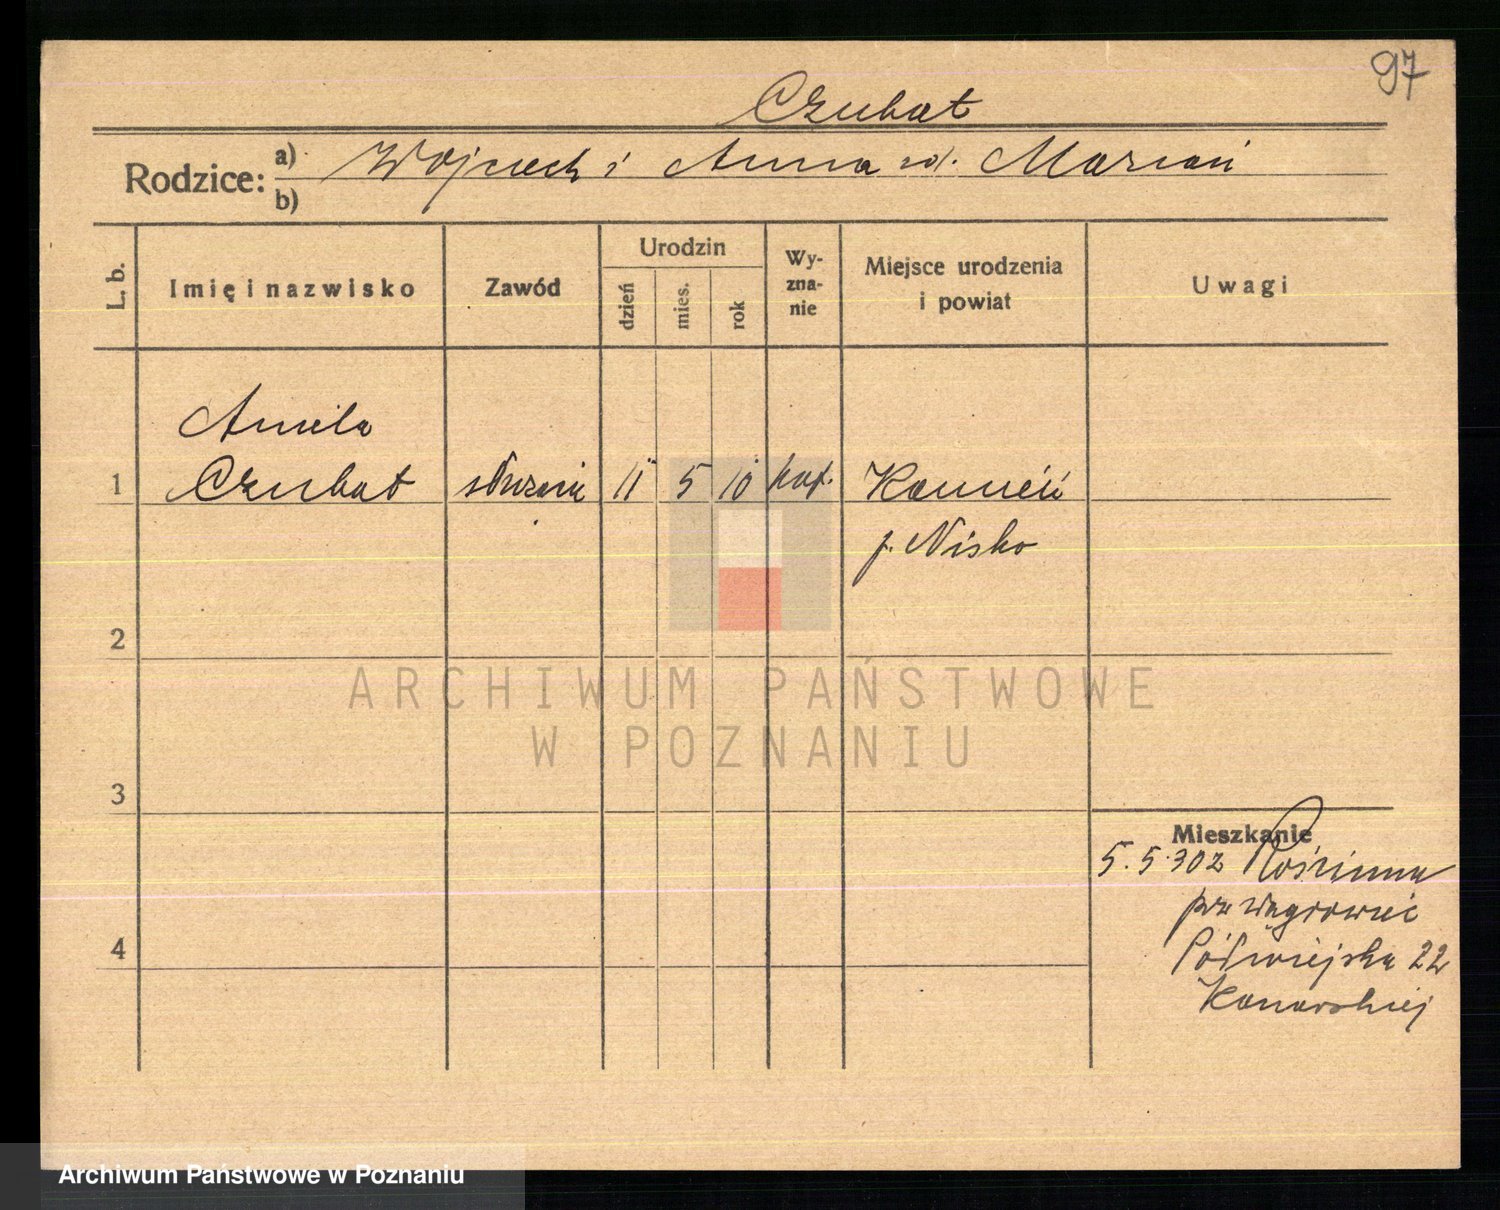 97
Czubat
Rodzice: a) Wojciech i Anna zd. Marcań
b)
L. b. Imię i nazwisko Zawód Urodzin dzień mies. rok Wyznanie Miejsce urodzenia i powiat Uwagi
Aniela
1 Czubat służąca 11 5 10 kat. Kamień
p. Nisko
2
ARCHIWUM PAŃSTWOWE
W POZNANIU
3
Mieszkanie
5.5.30 z Rośzinna
pw Wągrowiec
4 Półwiejska 22
Konarskiej
Archiwum Państwowe w Poznaniu